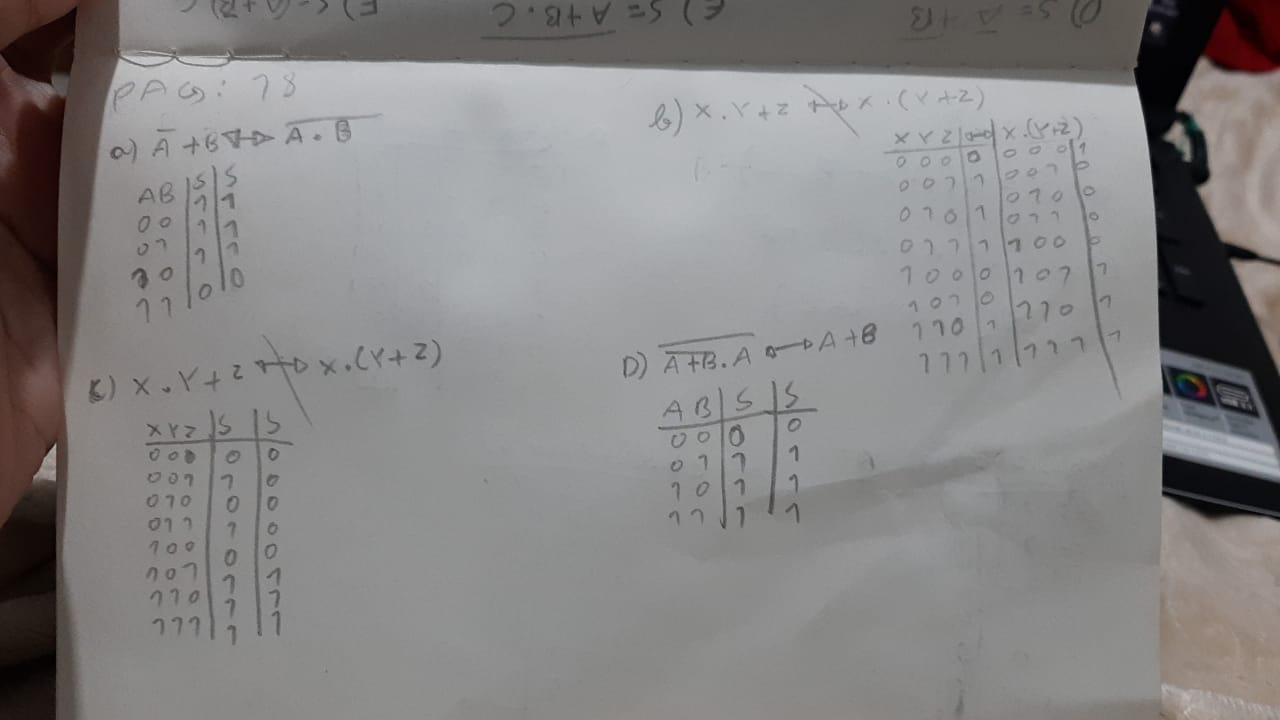 PAG: 18
a) A̅ + B ↔ A̅ ̅·̅ ̅B̅
AB | S | S
00 | 1 | 1
01 | 1 | 1
10 | 1 | 1
11 | 0 | 0
b) X . Y + Z ↔ X . (Y + Z)
X Y Z | ↔ | X . (Y+Z)
0 0 0 | 0 | 0 0 0 | 1
0 0 1 | 1 | 0 0 1 | 0
0 1 0 | 1 | 0 1 0 | 0
0 1 1 | 1 | 0 1 1 | 0
1 0 0 | 0 | 1 0 0 | 0
1 0 1 | 0 | 1 0 1 | 1
1 1 0 | 1 | 1 1 0 | 1
1 1 1 | 1 | 1 1 1 | 1
c) X . Y + Z ↔ X . (Y + Z)
XYZ | S | S
000 | 0 | 0
001 | 1 | 0
010 | 0 | 0
011 | 1 | 0
100 | 0 | 0
101 | 1 | 1
110 | 1 | 1
111 | 1 | 1
D) A̅+̅B̅ ̅.̅ ̅A̅ ↔ A + B
A B | S | S
0 0 | 0 | 0
0 1 | 1 | 1
1 0 | 1 | 1
1 1 | 1 | 1